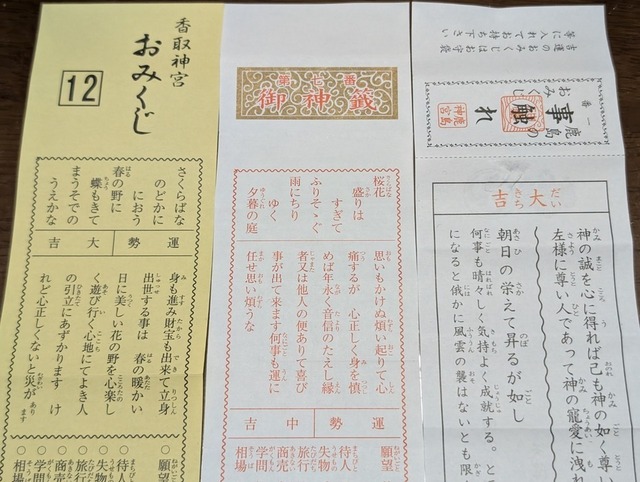 香取神宮
おみくじ
12
さくらばな
のどかに
におう
春の野に
蝶もきて
まうそでの
うえかな
運勢
大吉
身も進み財宝も出来て立身
出世する事は 春の暖かい
日に美しい花の野を心楽し
く遊び行く心地にてよき人
の引立にあずかります け
れど心正しくないと災があり
ます
○願望
○待人
○失物
○旅行
○商売
○学問
○相場
第七番
御神籤
桜花
盛りは
すぎて
ふりそゝぐ
雨にちり
ゆく
夕暮の庭
思いもかけぬ煩い起りて心
痛するが 心正しく身を慎
めば年永く音信のたえし縁
者又は他人の便ありて喜び
事が出て来ます何事も運に
任せ思い煩うな
運勢
中吉
願望
待人
失物
旅行
商売
学問
相場
吉運のおみくじはお守袋
等に入れてお持ち下さい
一番
鹿島の
事触れ
おみくじ
鹿島神宮
大吉
神の誠を心に得れば己も神の如く尊い
左様に尊い人であって神の寵愛に洩れ
朝日の栄えて昇るが如し
何事も晴々しく気持よく成就する。と
になると俄かに風雲の襲はないとも限